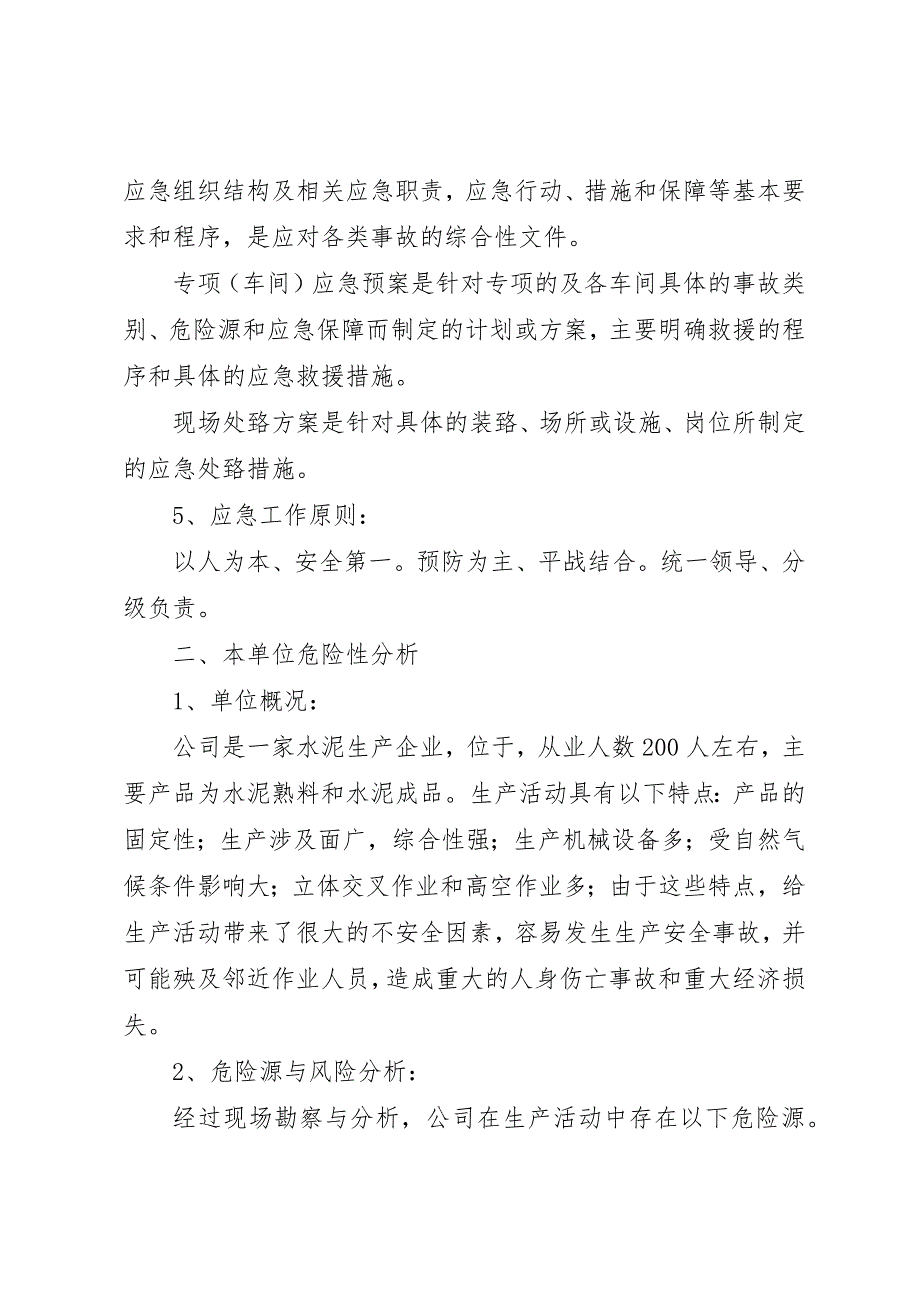 应急组织结构及相关应急职责，应急行动、措施和保障等基本要
求和程序，是应对各类事故的综合性文件。
专项（车间）应急预案是针对专项的及各车间具体的事故类
别、危险源和应急保障而制定的计划或方案，主要明确救援的程
序和具体的应急救援措施。
现场处臵方案是针对具体的装臵、场所或设施、岗位所制定
的应急处臵措施。
5、应急工作原则：
以人为本、安全第一。预防为主、平战结合。统一领导、分
级负责。
二、本单位危险性分析
1、单位概况：
公司是一家水泥生产企业，位于，从业人数 200 人左右，主
要产品为水泥熟料和水泥成品。生产活动具有以下特点：产品的
固定性；生产涉及面广，综合性强；生产机械设备多；受自然气
候条件影响大；立体交叉作业和高空作业多；由于这些特点，给
生产活动带来了很大的不安全因素，容易发生生产安全事故，并
可能殃及邻近作业人员，造成重大的人身伤亡事故和重大经济损
失。
2、危险源与风险分析：
经过现场勘察与分析，公司在生产活动中存在以下危险源。